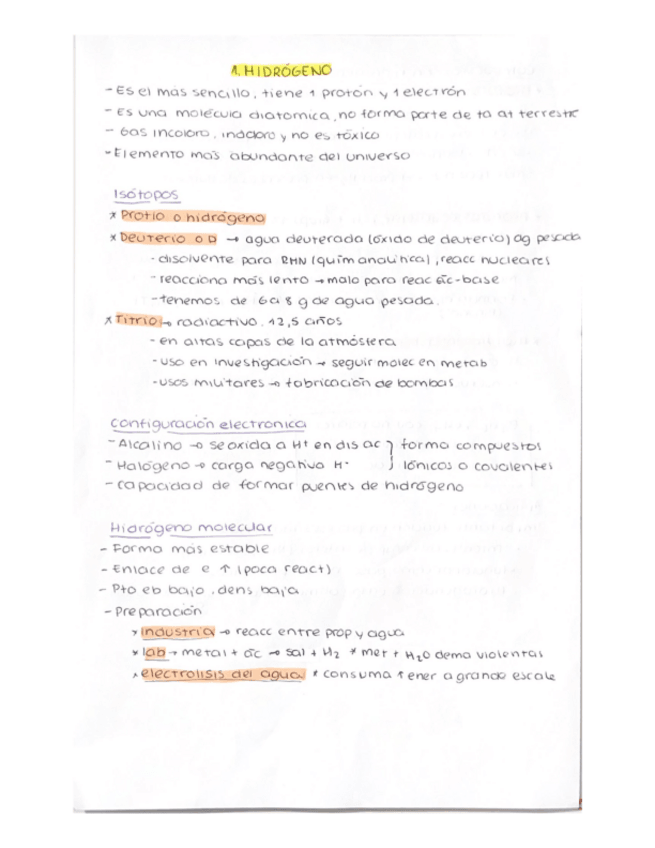 1. HIDRÓGENO
- Es el más sencillo, tiene 1 protón y 1 electrón
- Es una molécula diatomica, no forma parte de la at terrestre
- Gas incoloro, inodoro y no es tóxico
- Elemento más abundante del universo
Isótopos
* Protio o hidrógeno
* Deuterio o D → agua deuterada (óxido de deuterio) ag pesada
- disolvente para RMN (quim analítica), reacc nucleares
- reacciona más lento → malo para reac ác-base
- tenemos de 6 a 8 g de agua pesada.
* Titrio → radiactivo, 12,5 años
- en altas capas de la atmósfera
- uso en investigación → seguir molec en metab
- usos militares → fabricación de bombas
Configuración electronica
- Alcalino → se oxida a H+ en dis ac } forma compuestos
- Halógeno → carga negativa H- } iónicos o covalentes
- capacidad de formar puentes de hidrógeno
Hidrógeno molecular
- Forma más estable
- Enlace de e ↑ (poca react)
- Pto eb bajo, dens baja
- Preparación
* industria → reacc entre prop y agua
* lab → metal + ác → sal + H2 * met + H2O dema violentas
* electrolisis del agua * consuma ↑ ener a grande escale